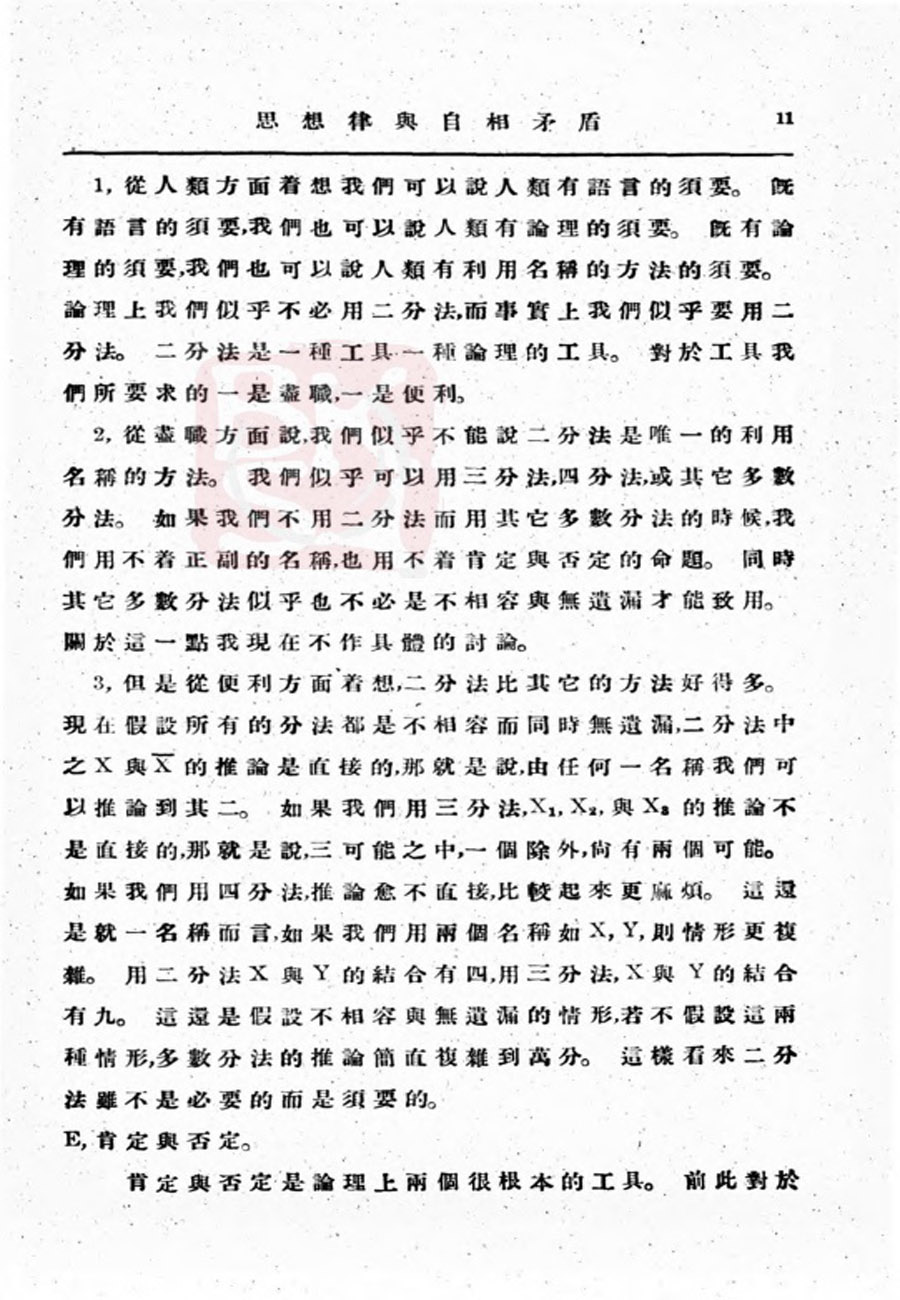 思想律與自相矛盾 11
1, 從人類方面着想我們可以說人類有語言的須要。 旣
有語言的須要,我們也可以說人類有論理的須要。 旣有論
理的須要,我們也可以說人類有利用名稱的方法的須要。
論理上我們似乎不必用二分法,而事實上我們似乎要用二
分法。 二分法是一種工具一種論理的工具。 對於工具我
們所要求的一是盡職,一是便利。
2, 從盡職方面說,我們似乎不能說二分法是唯一的利用
名稱的方法。 我們似乎可以用三分法,四分法,或其它多數
分法。 如果我們不用二分法而用其它多數分法的時候,我
們用不着正副的名稱,也用不着肯定與否定的命題。 同時
其它多數分法似乎也不必是不相容與無遺漏才能致用。
關於這一點我現在不作具體的討論。
3, 但是從便利方面着想,二分法比其它的方法好得多。
現在假設所有的分法都是不相容而同時無遺漏,二分法中
之 X 與 X̅ 的推論是直接的,那就是說,由任何一名稱我們可
以推論到其二。 如果我們用三分法,X₁, X₂, 與 X₃ 的推論不
是直接的,那就是說,三可能之中,一個除外,尙有兩個可能。
如果我們用四分法,推論愈不直接,比較起來更麻煩。 這還
是就一名稱而言,如果我們用兩個名稱如 X, Y, 則情形更複
雜。 用二分法 X 與 Y 的結合有四,用三分法, X 與 Y 的結合
有九。 這還是假設不相容與無遺漏的情形,若不假設這兩
種情形,多數分法的推論簡直複雜到萬分。 這樣看來二分
法雖不是必要的而是須要的。
E, 肯定與否定。
肯定與否定是論理上兩個很根本的工具。 前此對於